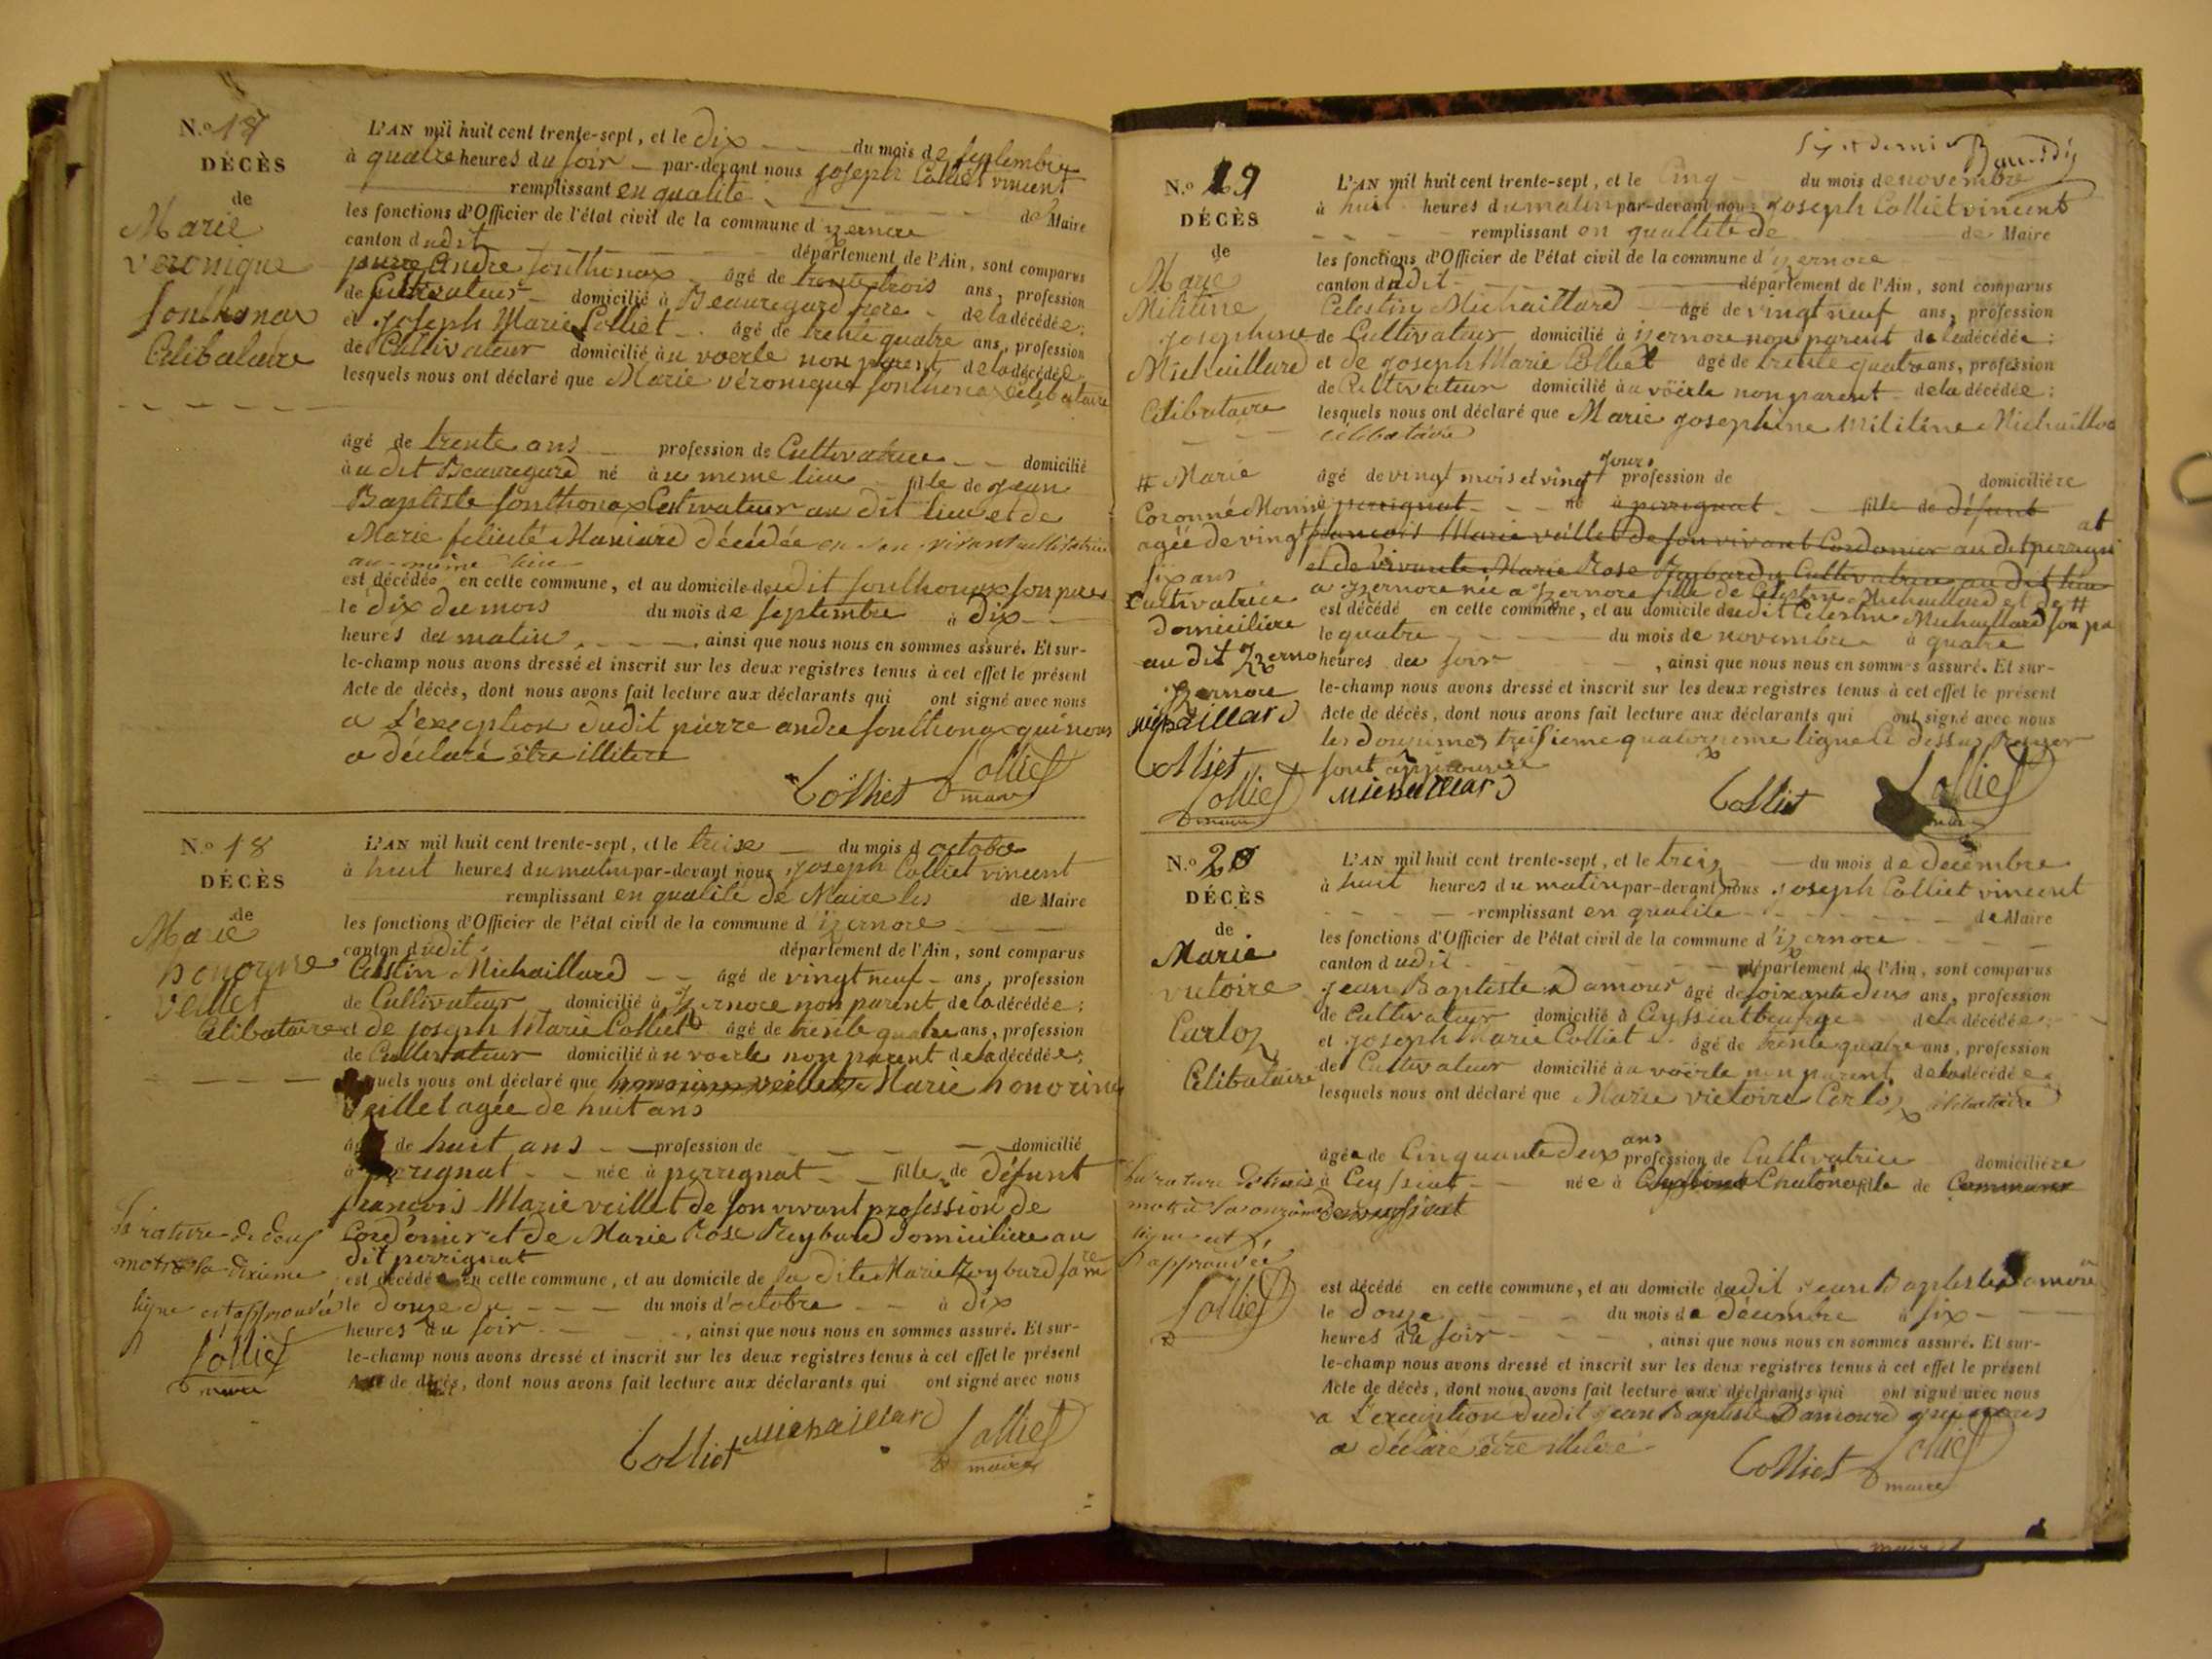 N.o 17
DÉCÈS
de
Marie
veronique
fonthonax
Célibataire
L'AN mil huit cent trente-sept, et le dix du mois de septembre
à quatre heures du soir par-devant nous joseph Colliet vincent
remplissant en qualité de Maire
les fonctions d'Officier de l'état civil de la commune d'izernore
canton dudit département de l'Ain, sont comparus
pierre andre fonthonax âgé de trente trois ans, profession
de Cultivateur domicilié à Beauregard frere de la décédée;
et joseph Marie Colliet âgé de trente quatre ans, profession
de Cultivateur domicilié au voerle non parent de la décédée
lesquels nous ont déclaré que Marie véronique fonthonax Célibataire
âgé de trente ans profession de Cultivatrice domicilié
audit Beauregard né au meme lieu fille de jean
Baptiste fonthonax Cultivateur au dit lieu et de
Marie felicité décédée en son vivant cultivatrice
au même lieu
est décédée en cette commune, et au domicile dudit fonthonax son père
le dix du mois du mois de septembre à dix
heures du matin, ainsi que nous nous en sommes assuré. Et sur-
le-champ nous avons dressé et inscrit sur les deux registres tenus à cet effet le présent
Acte de décès, dont nous avons fait lecture aux déclarants qui ont signé avec nous
a L'exception dudit pierre andre fonthonax qui nous
a déclaré être illitere
Colliet Colliet
maire
N.o 18
DÉCÈS
de
Marie
honorine
veillet
Célibataire
L'AN mil huit cent trente-sept, et le treise du mois d'octobre
à huit heures du matin par-devant nous joseph Colliet vincent
remplissant en qualité de Maire les de Maire
les fonctions d'Officier de l'état civil de la commune d'izernore
canton dudit département de l'Ain, sont comparus
Celestin Michaillard âgé de vingt neuf ans, profession
de Cultivateur domicilié à Izernore non parent de la décédée;
et de joseph Marie Colliet âgé de trente quatre ans, profession
de Cultivateur domicilié au voerle non parent de la décédée;
lesquels nous ont déclaré que honorine veillet Marie honorine
veillet agée de huit ans
âgé de huit ans profession de domicilié
à perrignat née à perrignat fille de défunt
francois Marie veillet de son vivant profession de
Cordonier et de Marie Rose Reybard domiciliere au
dit perrignat
est décédée en cette commune, et au domicile de la dite Marie Reybard sa mere
le douze du du mois d'octobre à dix
heures du soir, ainsi que nous nous en sommes assuré. Et sur-
le-champ nous avons dressé et inscrit sur les deux registres tenus à cet effet le présent
Acte de décès, dont nous avons fait lecture aux déclarants qui ont signé avec nous
la rature de deux
mots a la dixieme
ligne est approuvée
Colliet
maire
Colliet Michaillard Colliet
maire
N.o 19
DÉCÈS
de
Marie
Militine
josephine
Michaillard
Célibataire
L'AN mil huit cent trente-sept, et le cinq du mois de novembre
à huit heures du matin par-devant nous joseph Colliet vincent
remplissant en quallité de de Maire
les fonctions d'Officier de l'état civil de la commune d'izernore
canton dudit département de l'Ain, sont comparus
Celestin Michaillard âgé de vingt neuf ans, profession
de Cultivateur domicilié à izernore non parent de la décédée;
et de joseph Marie Colliet âgé de trente quatre ans, profession
de Cultivateur domicilié au voerle non parent de la décédée;
lesquels nous ont déclaré que Marie josephine Militine Michaillard
célibataire
âgé de vingt mois et vingt jours profession de domiciliére
à perrignat né à perrignat fille de défunt
francois Marie veillet de son vivant Cordonier au dit perrignat
et de vivante Marie Rose Reybard Cultivatrice au dit lieu
a izernore née a izernore fille de Celestin Michaillard et de #
est décédé en cette commune, et au domicile dudit Celestin Michaillard son pe
le quatre du mois de novembre à quatre
heures du soir, ainsi que nous nous en sommes assuré. Et sur-
le-champ nous avons dressé et inscrit sur les deux registres tenus à cet effet le présent
Acte de décès, dont nous avons fait lecture aux déclarants qui ont signé avec nous
les douzimes treisieme quatorzieme ligne ci dessus Rayer
sont approuvée
# Marie
agée de vingt
six ans
Cultivatrice
domiciliere
au dit Izerno
Izernore
Michaillard
Colliet
Colliet
maire
Michaillard Colliet Colliet
N.o 20
DÉCÈS
de
Marie
victoire
Carloz
Célibataire
L'AN mil huit cent trente-sept, et le treiz du mois de décembre
à huit heures du matin par-devant nous joseph Colliet vincent
remplissant en qualité de Maire
les fonctions d'Officier de l'état civil de la commune d'izernore
canton dudit département de l'Ain, sont comparus
jean Baptiste Damour âgé de soixante deux ans, profession
de Cultivateur domicilié à Ceyssiat de la décédée
et joseph Marie Colliet âgé de trente quatre ans, profession
de Cultivateur domicilié au voërle non parent de la décédée
lesquels nous ont déclaré que Marie victoire Carloz célibataire
âgée de Cinquante deux ans profession de Cultivatrice domiciliére
à Ceyssiat née à Chatona fille de Commune
de ceyssiat
est décédé en cette commune, et au domicile dudit jean Baptiste Damour
le douze du mois de décembre à six
heures du soir, ainsi que nous nous en sommes assuré. Et sur-
le-champ nous avons dressé et inscrit sur les deux registres tenus à cet effet le présent
Acte de décès, dont nous avons fait lecture aux déclarants qui ont signé avec nous
a L'exception dudit jean Baptiste Damourd qui nous
a déclaré être illitéré
La rature de trois
mots a la onzieme
ligne est
approuvée
Colliet
Colliet Colliet
maire